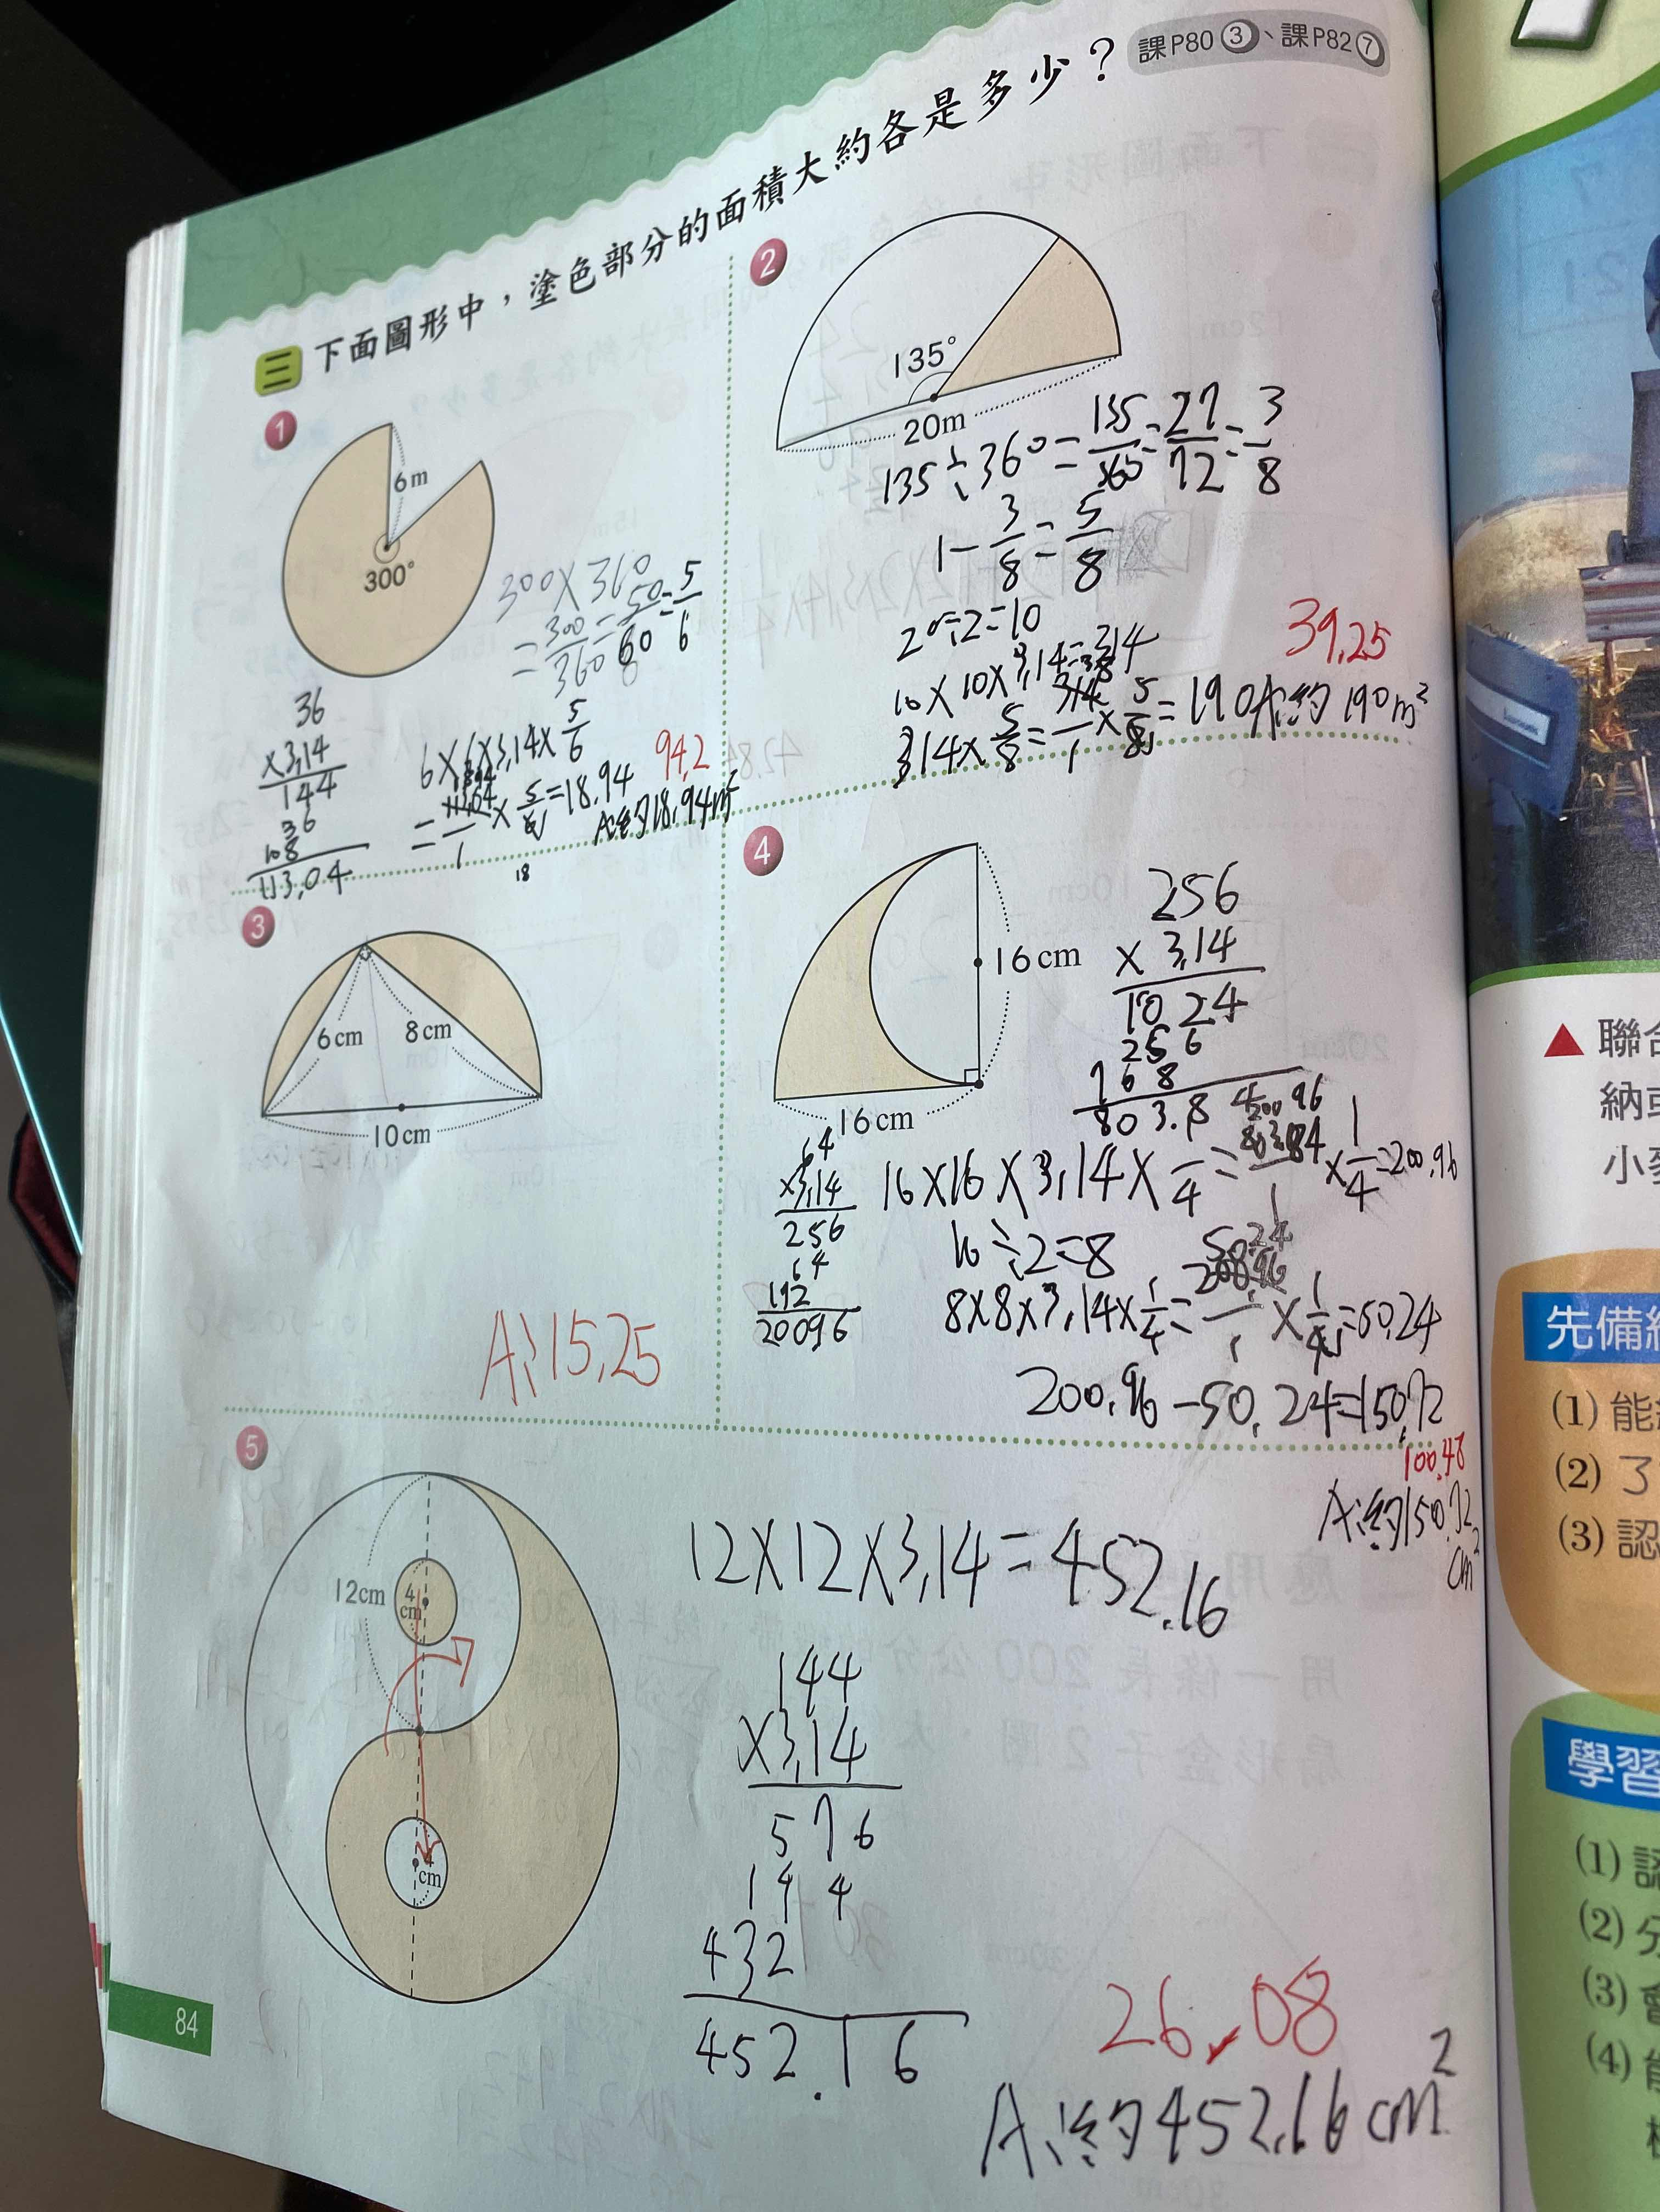 課P80③、課P82⑦
三 下面圖形中，塗色部分的面積大約各是多少？
1
6m
300°
300×360
=300/360=50/60=5/6
36
×3.14
144
36
108
113.04
6×6×3.14×5/6
×5/6=18.94
94.2
A:約18.94m²
18
2
135°
20m
135÷360=135/360=27/72=3/8
1-3/8=5/8
20÷2=10
10×10×3.14=314
314×5/8=314/1×5/8=190
39.25
A:約190m²
3
6cm
8cm
10cm
A:15.25
4
16cm
16cm
256
×3.14
1024
256
768
803.8
64
×3.14
256
64
192
20096
16×16×3.14×1/4=803.84/1×1/4=200.96
16÷2=8
8×8×3.14×1/4=200.96/1×1/4=50.24
200.96-50.24=150.72
100.48
A:約150.72
cm²
5
12cm
4
cm
4
cm
12×12×3.14=452.16
144
×3.14
576
144
432
452.16
26.08
A:約452.16cm²
84
▲聯合
納
小麥
先備
(1)能
(2)了
(3)認
學習
(1)認
(2)分
(3)會
(4)能